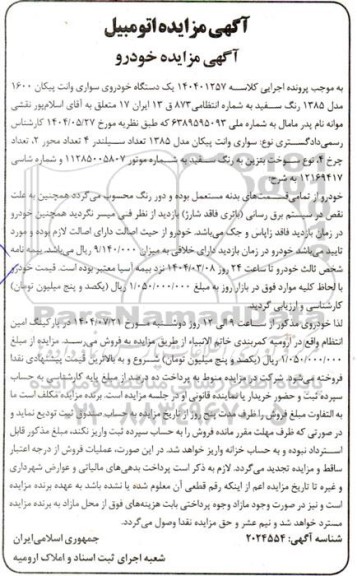 آگهی مزایده اتومبیل
آگهی مزایده خودرو
به موجب پرونده اجرایی کلاسه ۱۴۰۴۰۱۲۵۷ یک دستگاه خودروی سواری وانت پیکان ۱۶۰۰
مدل ۱۳۸۵ رنگ سفید به شماره انتظامی ۸۷۳ ق ۱۳ ایران ۱۷ متعلق به آقای اسلام‌پور نقشی
موانه نام پدر مامال به شماره ملی ۶۳۸۹۵۹۵۰۹۳ که طبق نظریه مورخ ۱۴۰۴/۰۵/۲۷ کارشناس
رسمی‌دادگستری نوع: سواری وانت پیکان مدل ۱۳۸۵ تعداد سیلندر ۴ تعداد محور ۲، تعداد
چرخ ۴، نوع سوخت بنزین به رنگ سفید به شماره موتور ۱۱۲۸۵۰۰۵۸۰۷ و شماره شاسی
۱۲۱۶۹۴۱۷ به شرح:
خودرو از تمامی قسمت‌های بدنه مستعمل بوده و دور رنگ محسوب می‌گردد همچنین به علت
نقص در سیستم برق رسانی (باتری فاقد شارژ) بازدید از نظر فنی میسر نگردید همچنین خودرو
در زمان بازدید فاقد زاپاس و جک می‌باشد. خودرو از حیث اصالت دارای اصالت لازم بوده و مورد
تایید می‌باشد خودرو در زمان بازدید دارای خلافی به میزان ۹/۱۴۰/۰۰۰ ریال می‌باشد. بیمه نامه
شخص ثالث خودرو تا ساعت ۲۴ روز ۱۴۰۴/۰۳/۰۸ نزد بیمه آسیا معتبر بوده است. قیمت خودرو
با لحاظ کلیه موارد فوق در بازار روز به مبلغ ۱/۰۵۰/۰۰۰/۰۰۰ ریال (یکصد و پنج میلیون تومان)
کارشناسی و ارزیابی گردید.
لذا خودروی مذکور از ساعت ۹ الی ۱۲ روز دوشنبه مورخ ۱۴۰۴/۰۷/۲۱ در پارکینگ امین
انتظام واقع در ارومیه کمربندی خاتم الانبیاء از طریق مزایده به فروش می‌رسد. مزایده از مبلغ
۱/۰۵۰/۰۰۰/۰۰۰ ریال (یکصد و پنج میلیون تومان) شروع و به بالاترین قیمت پیشنهادی نقدا
فروخته می‌شود. شرکت در مزایده منوط به پرداخت ده درصد از مبلغ پایه کارشناسی به حساب
سپرده ثبت و حضور خریدار یا نماینده قانونی او در جلسه مزایده است. برنده مزایده مکلف است ما
به التفاوت مبلغ فروش را ظرف مدت پنج روز از تاریخ مزایده به حساب صندوق ثبت تودیع نماید و
در صورتی که ظرف مهلت مقرر مانده فروش را به حساب سپرده ثبت واریز نکند، مبلغ مذکور قابل
استرداد نبوده و به حساب خزانه واریز خواهد شد. در این صورت، عملیات فروش از درجه اعتبار
ساقط و مزایده تجدید می‌گردد. لازم به ذکر است پرداخت بدهی‌های مالیاتی و عوارض شهرداری
و غیره تا تاریخ مزایده اعم از اینکه رقم قطعی آن معلوم شده یا نشده باشد به عهده برنده مزایده
است و نیز در صورت وجود مازاد وجوه پرداختی بابت هزینه‌های فوق از محل مازاد به برنده مزایده
مسترد خواهد شد و نیم عشر و حق مزایده نقدا وصول می‌گردد.
شناسه آگهی: ۲۰۲۴۵۵۴ جمهوری اسلامی‌ایران
شعبه اجرای ثبت اسناد و املاک ارومیه
ParsNamadData